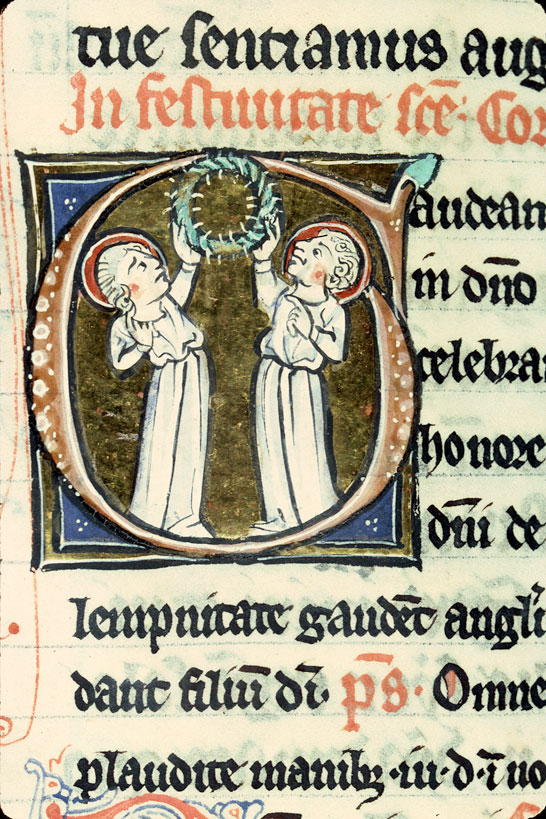 tue sentiamus aug
In festiuitate scē. Cor
Gaudean
in dño
celebra
honore
dñi de
lempnitate gaudēt angli
dant filiū dī. ps̄. Omne
plaudite manibꝫ .iii. d. ī no